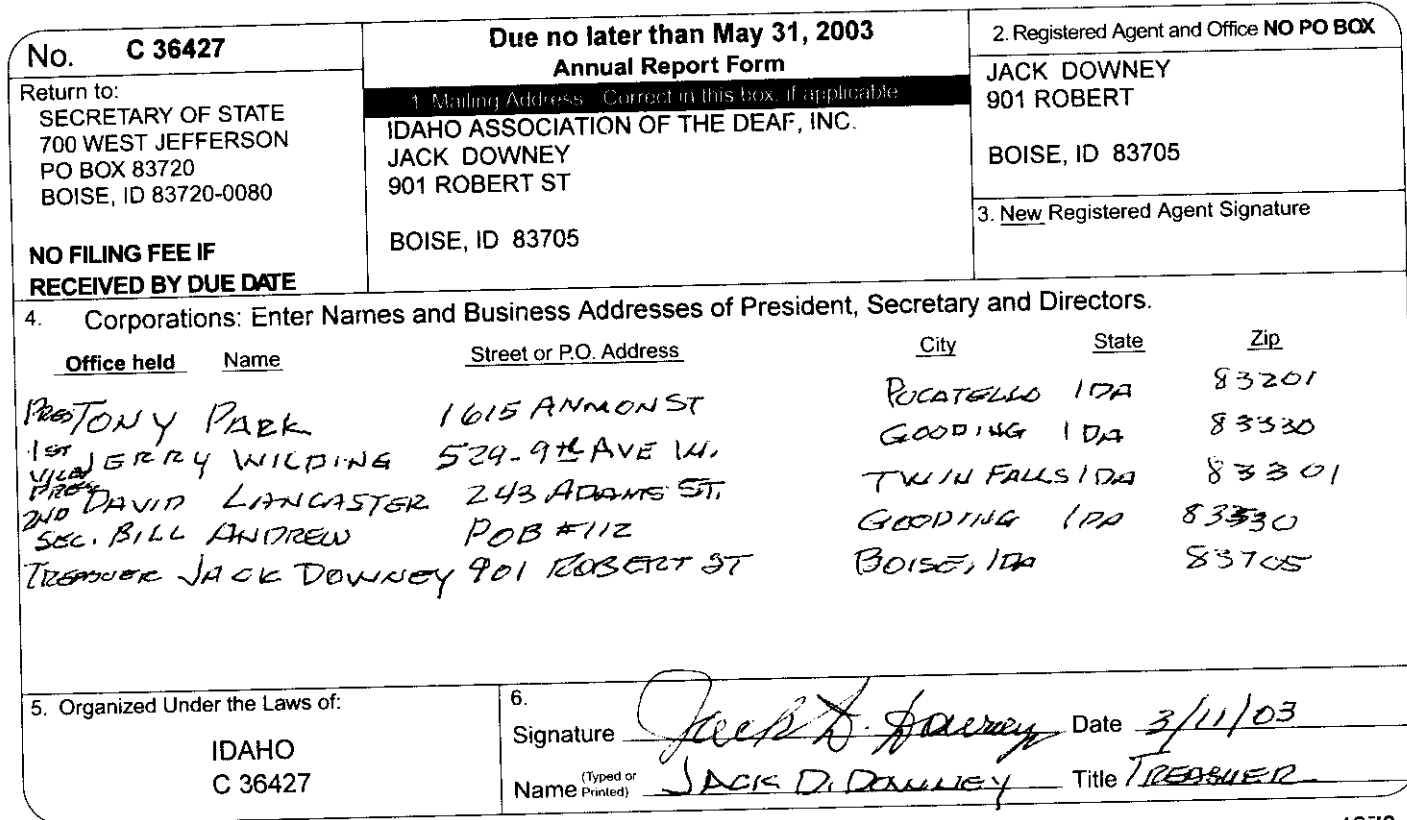 No. C 36427
Return to:
SECRETARY OF STATE
700 WEST JEFFERSON
PO BOX 83720
BOISE, ID 83720-0080
NO FILING FEE IF
RECEIVED BY DUE DATE
Due no later than May 31, 2003
Annual Report Form
1. Mailing Address. Correct in this box, if applicable
IDAHO ASSOCIATION OF THE DEAF, INC.
JACK DOWNEY
901 ROBERT ST
BOISE, ID 83705
2. Registered Agent and Office NO PO BOX
JACK DOWNEY
901 ROBERT
BOISE, ID 83705
3. New Registered Agent Signature
4. Corporations: Enter Names and Business Addresses of President, Secretary and Directors.
Office held Name Street or P.O. Address City State Zip
PRES TONY PARK 1615 ANMON ST POCATELLO IDA 83201
1ST VICE PRES JERRY WILDING 529-9th AVE W. GOODING IDA 83330
2ND DAVID LANCASTER 243 ADAMS ST. TWIN FALLS IDA 83301
SEC. BILL ANDREW POB #112 GOODING IDA 83330
TREASUER JACK DOWNEY 901 ROBERT ST BOISE, IDA 83705
5. Organized Under the Laws of:
IDAHO
C 36427
6.
Signature Jack D. Downey Date 3/11/03
Name (Typed or Printed) JACK D. DOWNEY Title TREASUER